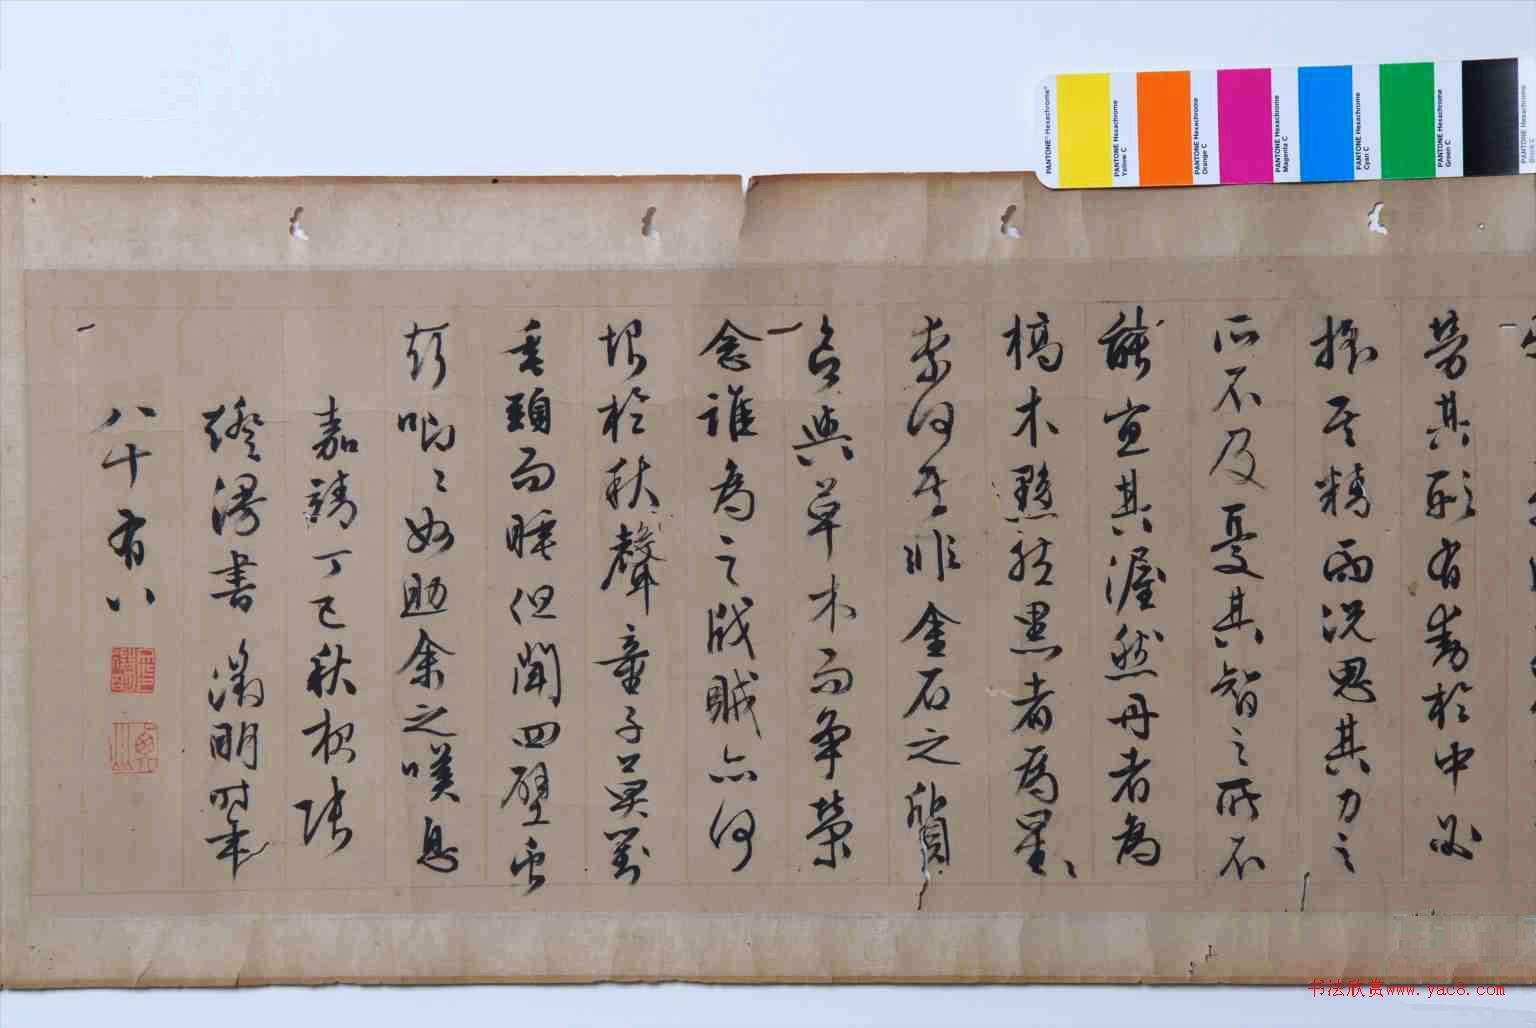 PANTONE® Hexachrome®
PANTONE Hexachrome
Yellow C
PANTONE Hexachrome
Orange C
PANTONE Hexachrome
Magenta C
PANTONE Hexachrome
Cyan C
PANTONE Hexachrome
Green C
PANTONE Hexachrome
Black C
勞其形有動於中必
搖其精而況思其力之
所不及憂其智之所不
能宜其渥然丹者為
槁木黟然黑者為星〻
柰何其非金石之質
與草木而爭榮
念誰為之戕賊亦何
恨於秋聲童子莫對
垂頭而睡但聞四壁虫
聲唧〻如助余之嘆息
嘉靖丁巳秋夜張
燈漫書 徵明時年
八十有八
书法欣赏www.yac8.com